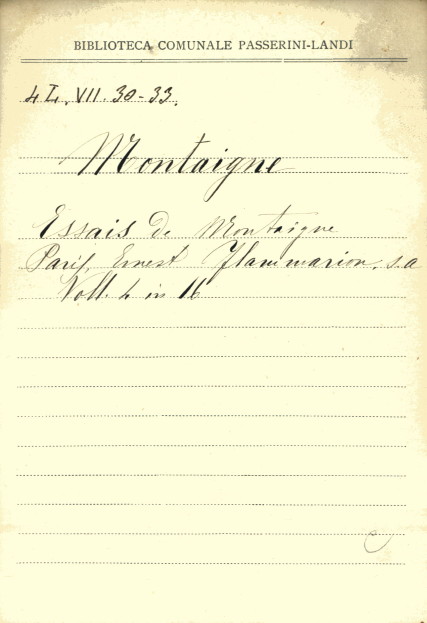 BIBLIOTECA COMUNALE PASSERINI-LANDI
4 L. VII. 30-33.
Montaigne
Essais de Montaigne
Paris, Ernest Flammarion, s.a
Voll. 4 in 16